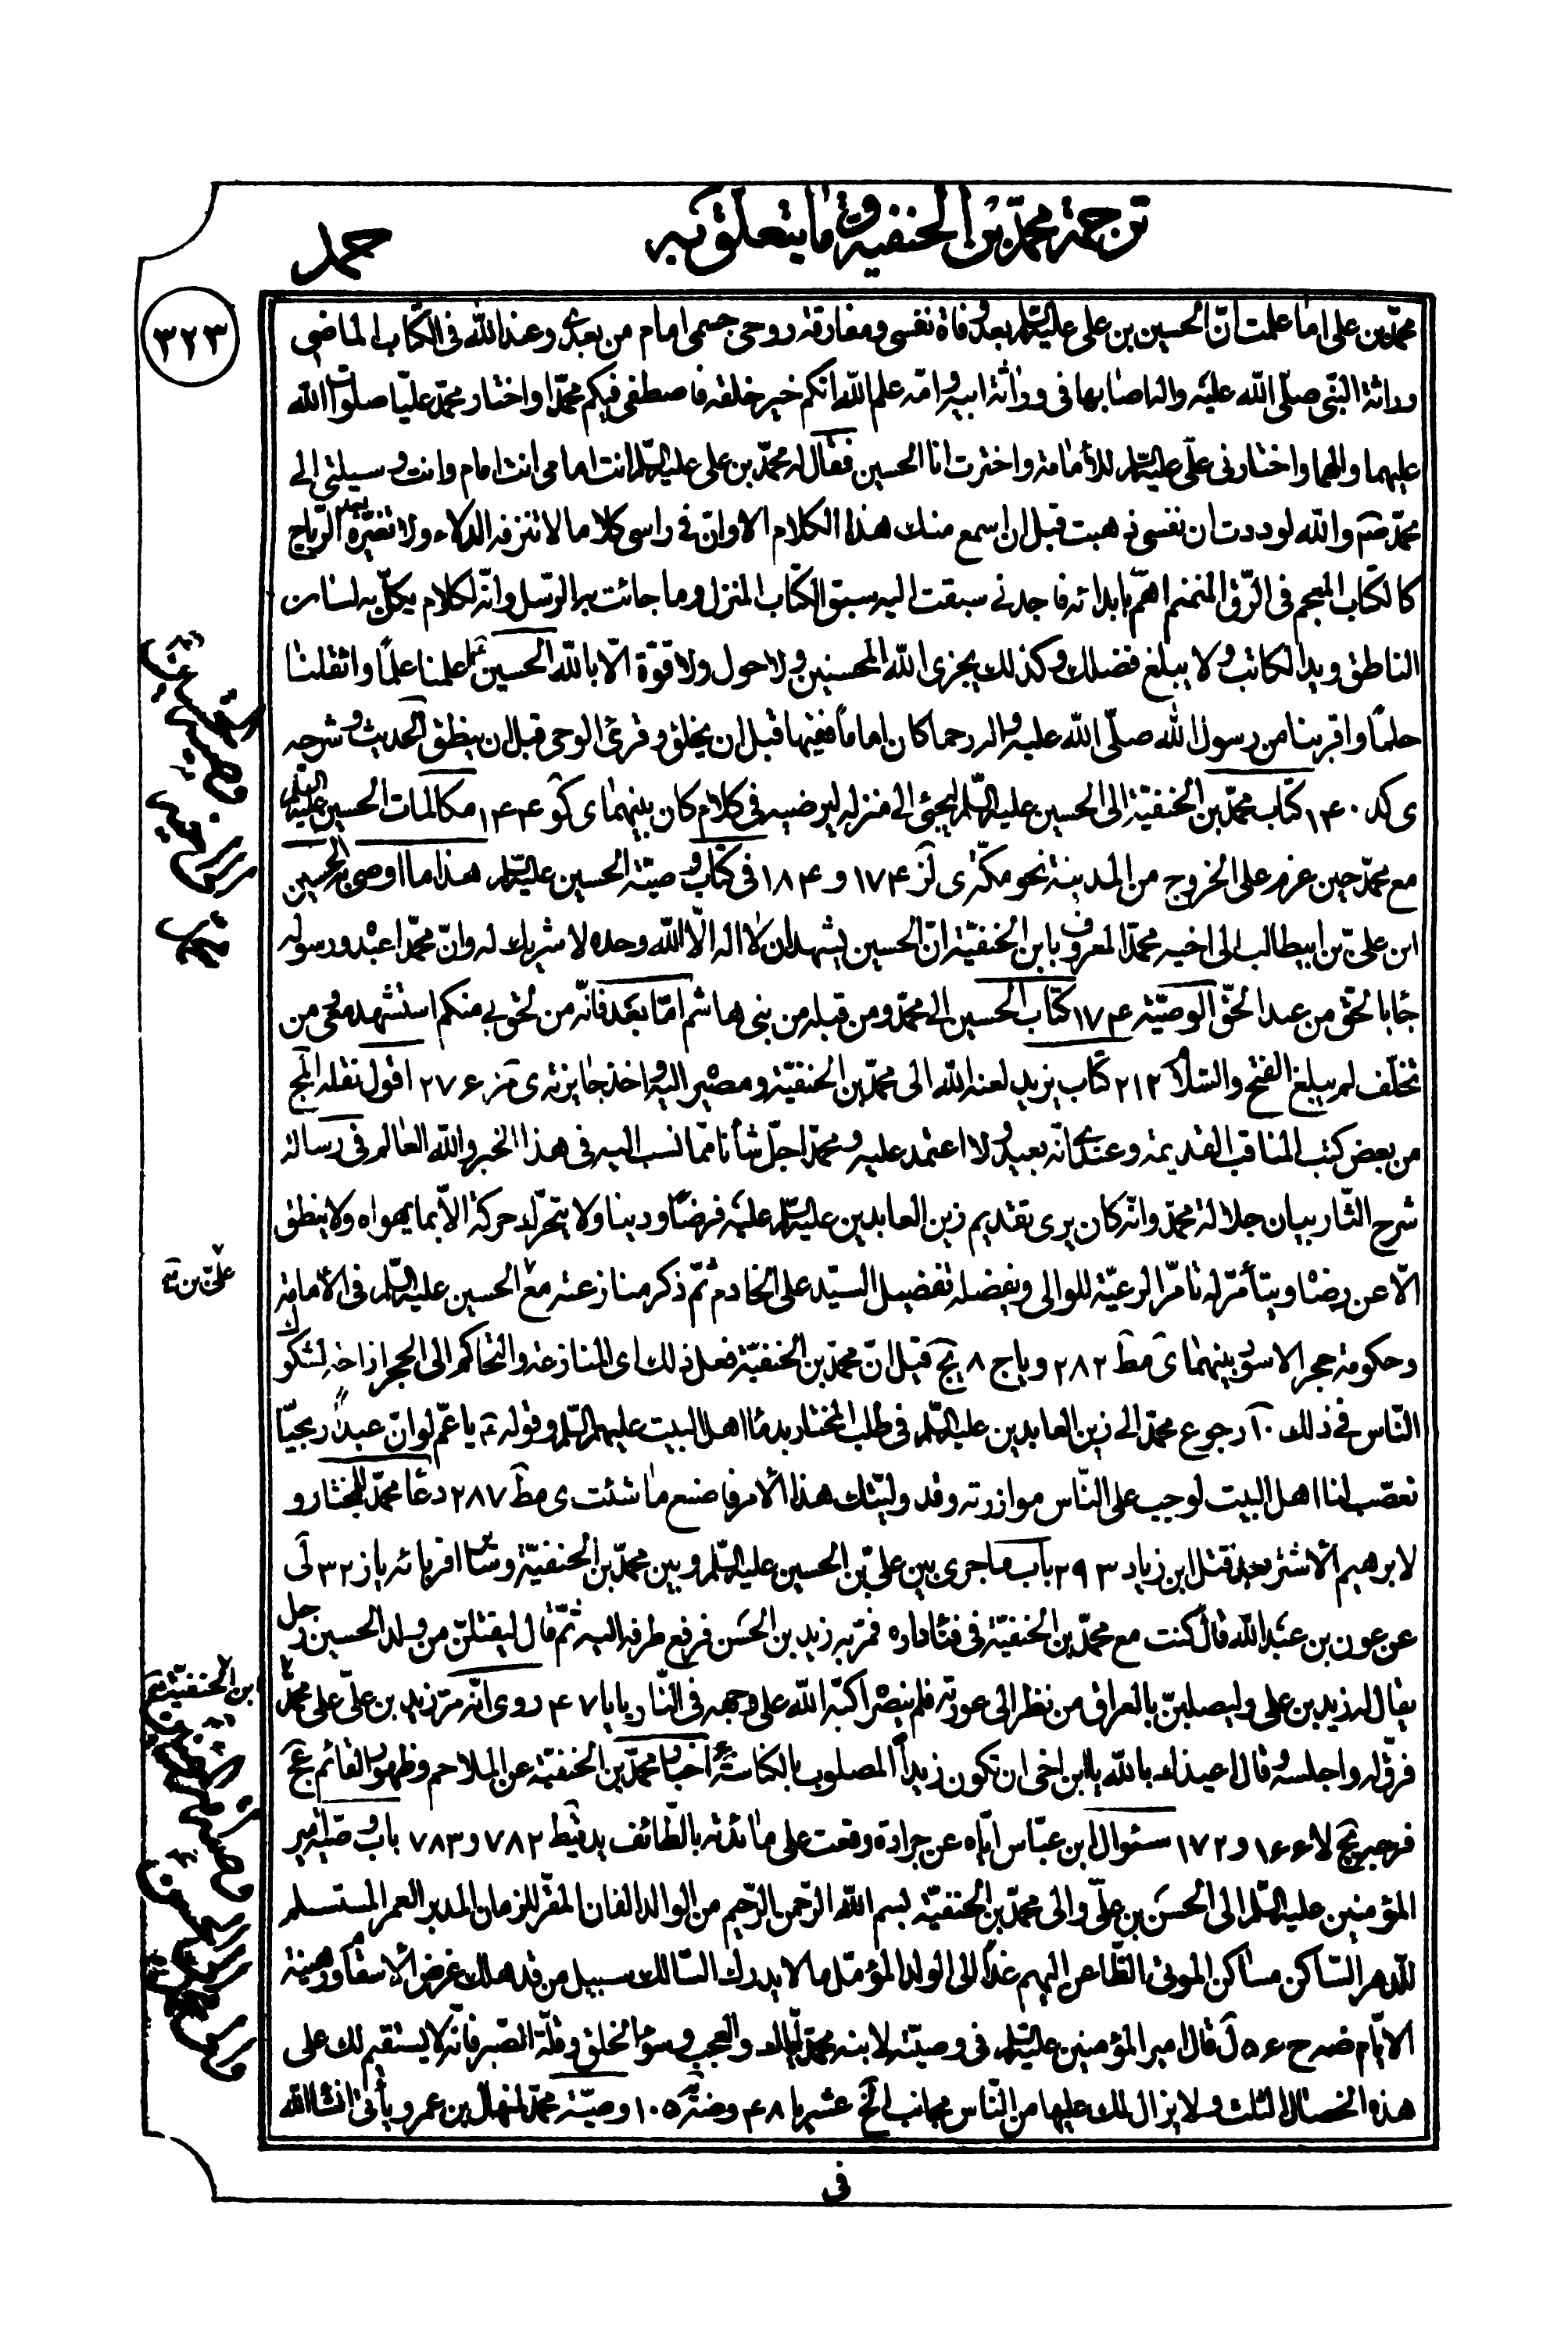 ترجمة محمّد بن الحنفية وما يتعلّق به
حمد
٣٢٣
محمّد بن على اما علمت انّ الحسين بن على عليه السّلم بعد وفاة نفسى ومفارقة روحى جسمى امام من بعدى وعند الله فى الكتاب الماضى
وراثة النبّى صلّى الله عليه واله اصابها فى وراثة ابيه وامّه علم الله انكم خير خلقه فاصطفى فيكم محمّدا واختار محمّد عليّا صلوات الله
عليهما والهما واختارنى علىّ عليه السّلم للأمامة واخترت انا الحسين فقال له محمّد بن على عليه السّلم انت امامى انت امام وانت وسيلتى الى
محمّد صم والله لوددت ان نفسى ذهبت قبل ان اسمع منك هذا الكلام الا وانّ فى راسى كلاما لا تنزفه الدلاء ولا تغيّره الرّياح
كالكتاب المعجم فى الرّق المنمنم اهمّ بابدائه فاجدنى سبقت اليه سبق الكتاب المنزل وما جائت به الرّسل وانّه لكلام يكلّ به لسان
الناطق ويد الكاتب ولا يبلغ فضلك وكذلك يجزى الله المحسنين ولا حول ولا قوّة الّا بالله الحسين علمنا علمًا واثقلنا
حلمًا واقربنا من رسول الله صلّى الله عليه واله رحما كان امامًا فقيها قبل ان يخلق وقرئ الوحى قبل ان ينطق الحديث وشرحه
ى كد ١۴٠ كتاب محمّد بن الحنفيّة الى الحسين عليه السّلم ليجئى الى منزله ليرضيه فى كلام كان بينهما ى كو ١۴۴ مكالمات الحسين عليه السّلم
مع محمّد حين عزم على الخروج من المدينة نحو مكّة ى لز ١٧۴ و ١٨۴ فى كتاب وصيّة الحسين عليه السّلم هذا ما اوصى به الحسين
ابن علىّ بن ابيطالب الى اخيه محمّد المعروف بابن الحنفيّة انّ الحسين يشهد ان لا اله الّا الله وحده لا شريك له وانّ محمّدا عبده ورسوله
جاء بالحقّ من عند الحّق الوصيّة ١٧۴ كتاب الحسين الى محمّد ومن قبله من بنى هاشم امّا بعد فانّه من لحق بى منكم استشهد معى ومن
تخلّف لم يبلغ الفتح والسّلام ٢١٢ كتاب يزيد لعنه الله الى محمّد بن الحنفيّة ومصيره اليه واخذ جايزته ى مز ٢٧۶ اقول نقله المج
من بعض كتب المناقب القديمة وعندى انّه بعيد ولا اعتمد عليه ومحمّد اجلّ شأنا ممّا نسب اليه فى هذا الخبر والله العالم فى رسالة
شرح الثّار بيان جلالة محمّد وانّه كان يرى تقديم زين العابدين عليه السّلم عليه فرضًا ودينا ولا يتحرّك حركة الّا بما يهواه ولا ينطق
الّا عن رضاه ويتأمّر له تامّر الرعيّة للوالى ويفضله تفضيل السيّد على الخادم ثمّ ذكر منازعته مع الحسين عليه السّلم فى الأمامة
وحكومة حجر الاسود بينهما ى مط ٢٨٢ ويا ج ٨ يج قيل انّ محمّد بن الحنفيّة فعل ذلك اى المنازعة والتحاكم الى الحجر ازاحة لشكوك
النّاس فى ذلك ١٠ رجوع محمّد الى زين العابدين عليه السّلم فى طلب المختار بدماء اهل البيت عليهم السّلم وقوله يا عمّ لو انّ عبدًا زنجيّا
تعصّب لنا اهل البيت لوجب على النّاس موازرته وقد وليّتك هذا الأمر فاصنع ما شئت ى مط ٢٨٧ دعاء محمّد للمختار و
لابرهيم الأشتر بعد قتل ابن زياد ٢٩٣ باب ما جرى بين علىّ بن الحسين عليه السّلم وبين محمّد بن الحنفيّة وسائر اقربائه يا ز ٣٢ لى
عن عون بن عبد الله قال كنت مع محمّد بن الحنفيّة فى فناء داره فمرّ به زيد بن الحسن فرفع طرفه اليه ثمّ قال ليقتلنّ من ولد الحسين رجل
يقال له زيد بن على وليصلبنّ بالعراق من نظر الى عورته فلم ينصره اكبّه الله على وجهه فى النّار يا يا ۴٧ روى انّه مرّ زيد بن علىّ على محمّد
فرقّ له واجلسه وقال اعيذك بالله يا ابن اخى ان تكون زيدًا المصلوب بالكناسة اخبار محمّد بن الحنفيّة عن الملاحم وظهور القائم عج
فرجه يج لا ١۶۶ و ١٧٢ سئوال ابن عبّاس ايّاه عن جرادة وقعت على مائدته بالطّائف يد قيط ٧٨٢ و ٧٨٣ باب وصيّة امير
المؤمنين عليه السّلم الى الحسن بن علىّ والى محمّد بن الحنفيّة بسم الله الرّحمن الرّحيم من الوالد الفان المقرّ للزمان المدبر العمر المستسلم
للدهر السّاكن مساكن الموتى الظّاعن اليهم غدًا الى الولد المؤمّل ما لا يدرك السّالك سبيل من قد هلك غرض الأسقام ورهينة
الايّام ضه ح ۵۶ ل قال امير المؤمنين عليه السّلم فى وصيّته لابنه محمّد ايّاك والعجب وسوء الخلق وقلّة الصّبر فانّه لا يستقيم لك على
هذه الخصال الثلث ولا يزال لك عليها من النّاس مجانب الخ عشر يا ۴٨ وضه ١٠۵ وصيّة محمّد لمنهال بن عمر ويأتى انشاالله
علىّ بن
ابن الحنفيّة
فى